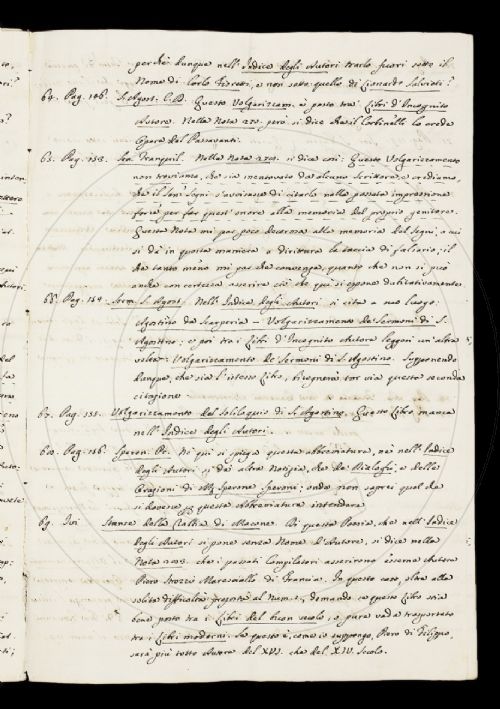 perchè dunque nell'Indice degli Autori trarlo fuori sotto il
Nome di Carlo Fioretti, e non sotto quello di Lionardo Salviati?
64. Pag. 146. S. Agost. C. D. Questo Volgarizzam. è posto tra' Libri d'Incognito
Autore. Nella Nota 270. però si dice che il Corbinelli lo creda
Opera del Passavanti.
65. Pag. 153. Sen. Tranquil. Nella Nota si dice così: Questo Volgarizzamento
non troviamo, che sia mentovato da alcuno Scrittore, e crediamo,
che il Sen. Segni s'avvisasse di citarlo nella passata impressione
forse per far quest'onore alla memoria del proprio genitore.
Questa Nota mi par poco decorosa alla memoria del Segni, a cui
si dà in questa maniera a dirittura la taccia di falsario; il
che tanto meno mi par che convenga, quanto che non si può
anche con certezza asserire ciò che qui si espone dubitativamente.
66. Pag. 154. Serm. S. Agost. Nell'Indice degli Autori si cita a suo luogo:
Agostino da Scarperia - Volgarizzamento de' Sermoni di S.
Agostino: e poi tra i Libri d'Incognito Autore leggesi un'altra
volta: Volgarizzamento de' Sermoni di S. Agostino. Supponendo
dunque, che sia l'istesso Libro, bisognerà tor via questa seconda
citazione.
67. Pag. 155. Volgarizzamento del Soliloquio di S. Agostino. Questo Libro manca
nell'Indice degli Autori.
68. Pag. 156. Speron. Or. Nè qui si spiega questa abbreviatura, nè nell'Indice
degli Autori si dà altra Notizia, che de' Dialoghi, e delle
Orazioni di Sperone Speroni; onde non saprei qual cosa
si dovesse per questa abbreviatura intendere
69. Ivi Stanze della di Di questa Poesia, che nell'Indice
degli Autori si pone senza Nome d'Autore, si dice nella
Nota che i passati Compilatori asserirono esserne Autore
Piero Strozzi Maresciallo di Francia. In questo caso, oltre alla
solita difficoltà proposta al Num. 1., domando se questo Libro stia
bene posto tra i Libri del buon secolo, o pure vada trasportato
tra i Libri moderni. Se questo è, come io suppongo, Piero di Filippo,
sarà più tosto Autore del XVI. che del XIV. Secolo.